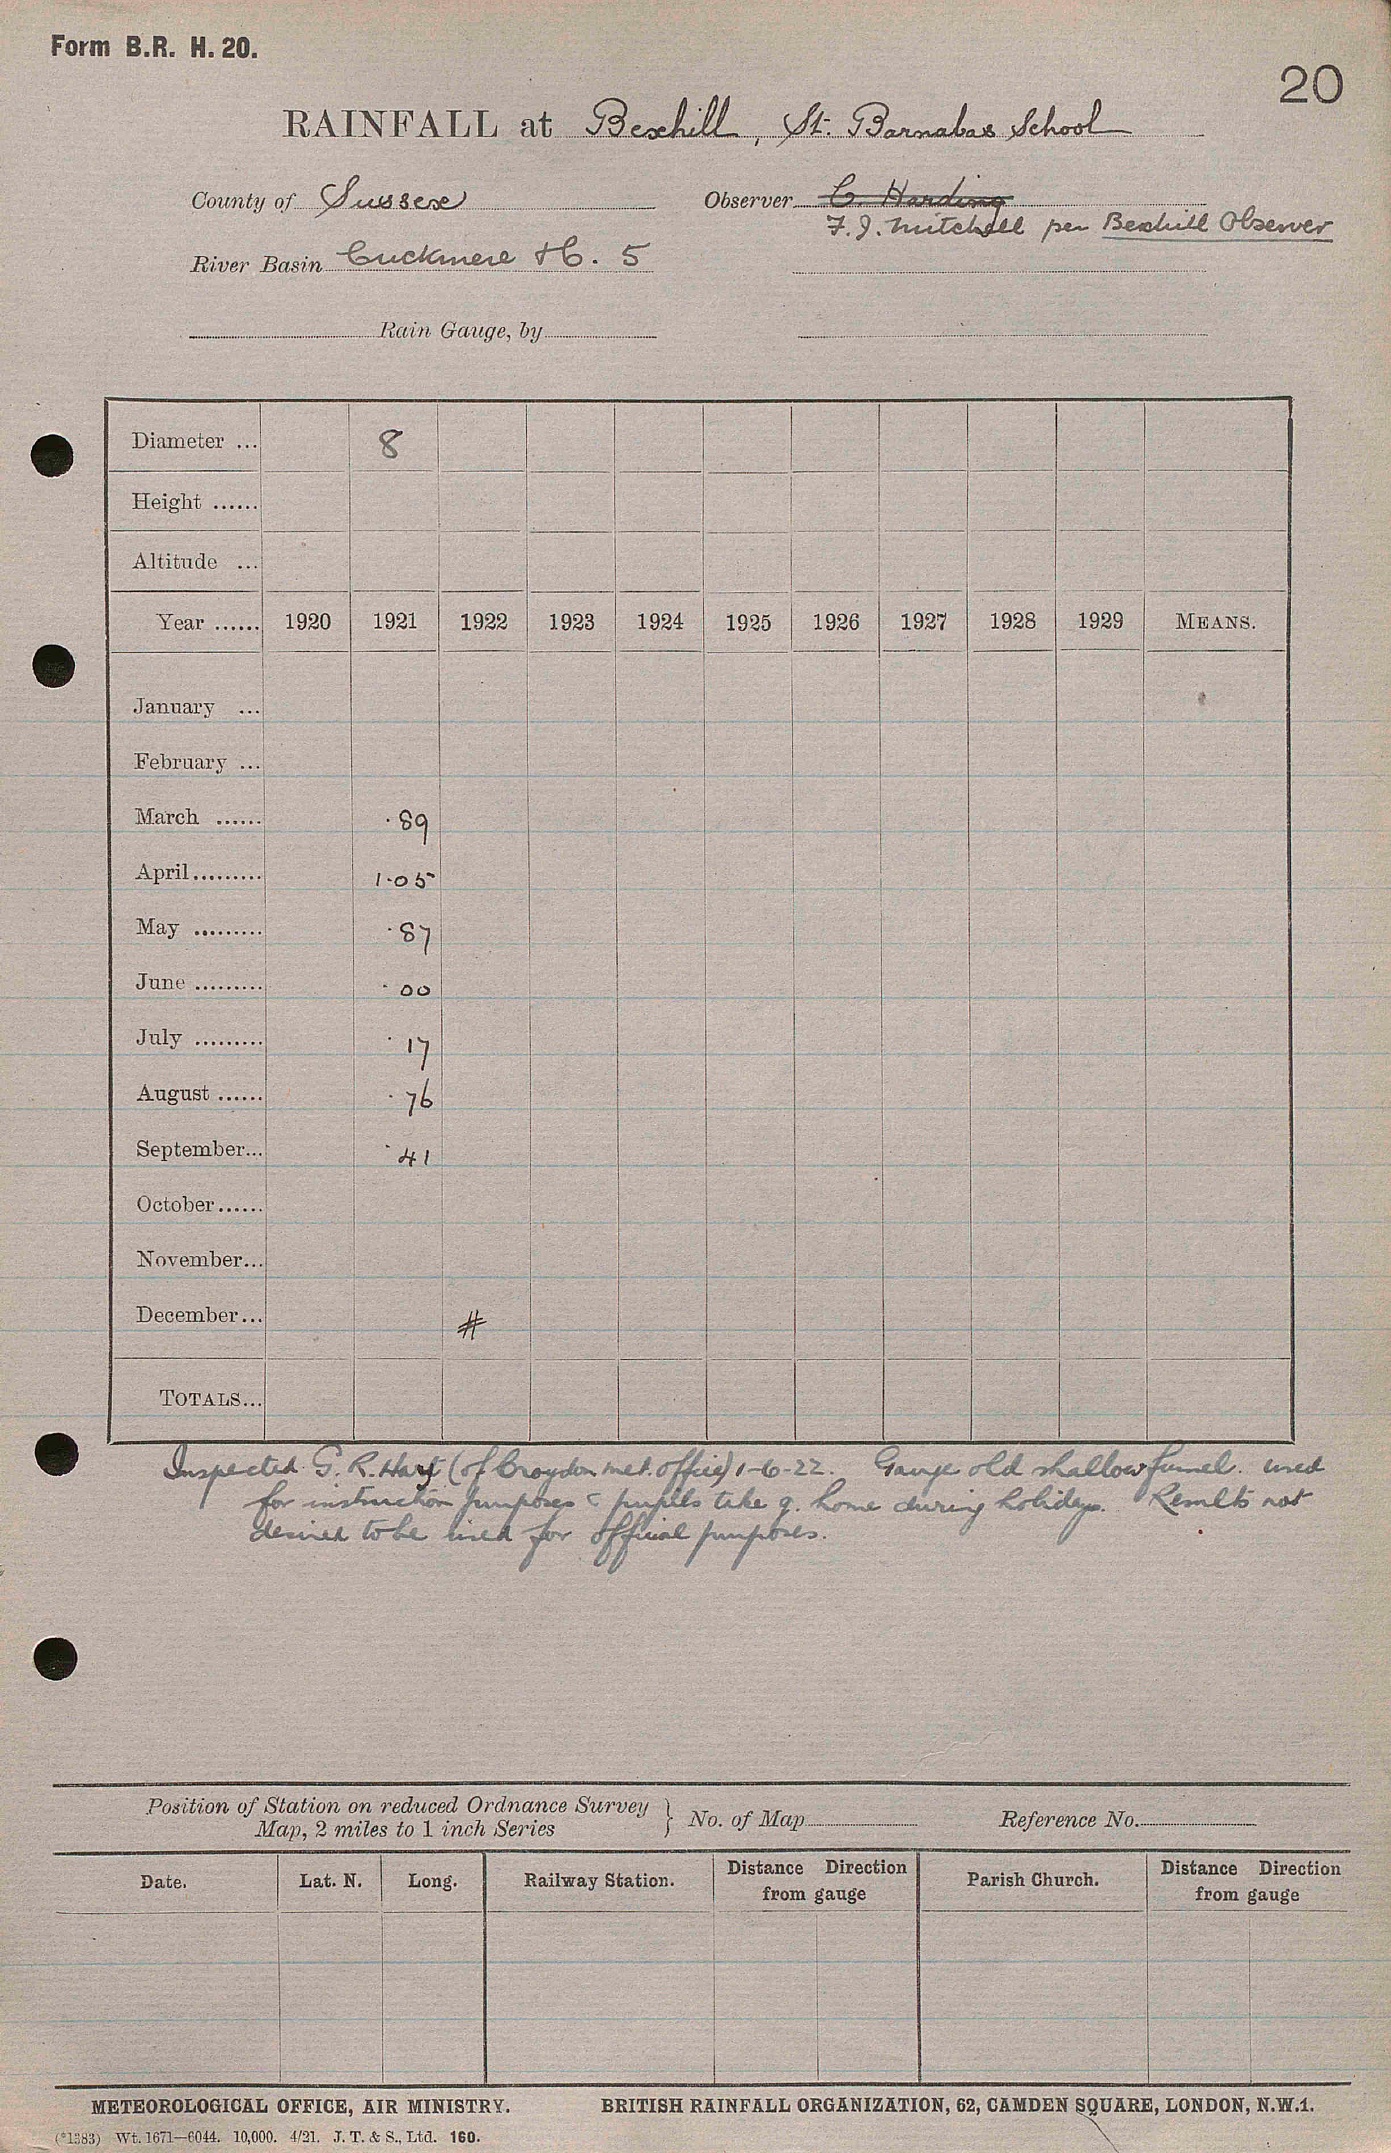 Form B.R. H. 20.
20
RAINFALL at Bexhill, St. Barnabas School
County of Sussex Observer C. Harding
F. J. Mitchell per Bexhill Observer
River Basin Cuckmere &c. 5
Rain Gauge, by
Diameter ... 8
Height ......
Altitude ...
Year ...... 1920 1921 1922 1923 1924 1925 1926 1927 1928 1929 MEANS.
January ...
February ...
March ...... ·89
April......... 1·05
May ......... ·87
June ......... ·00
July ......... ·17
August ...... ·76
September... ·41
October......
November...
December... #
TOTALS...
Inspected G. R. Hay (of Croydon met. office) 1-6-22. Gauge old shallow funnel. used
for instruction purposes & pupils take g. home during holidays. Results not
desired to be used for official purposes.
Position of Station on reduced Ordnance Survey
Map, 2 miles to 1 inch Series } No. of Map Reference No.
Date. Lat. N. Long. Railway Station. Distance Direction from gauge Parish Church. Distance Direction from gauge
METEOROLOGICAL OFFICE, AIR MINISTRY. BRITISH RAINFALL ORGANIZATION, 62, CAMDEN SQUARE, LONDON, N.W.1.
(*1383) Wt. 1671—6044. 10,000. 4/21. J. T. & S., Ltd. 160.